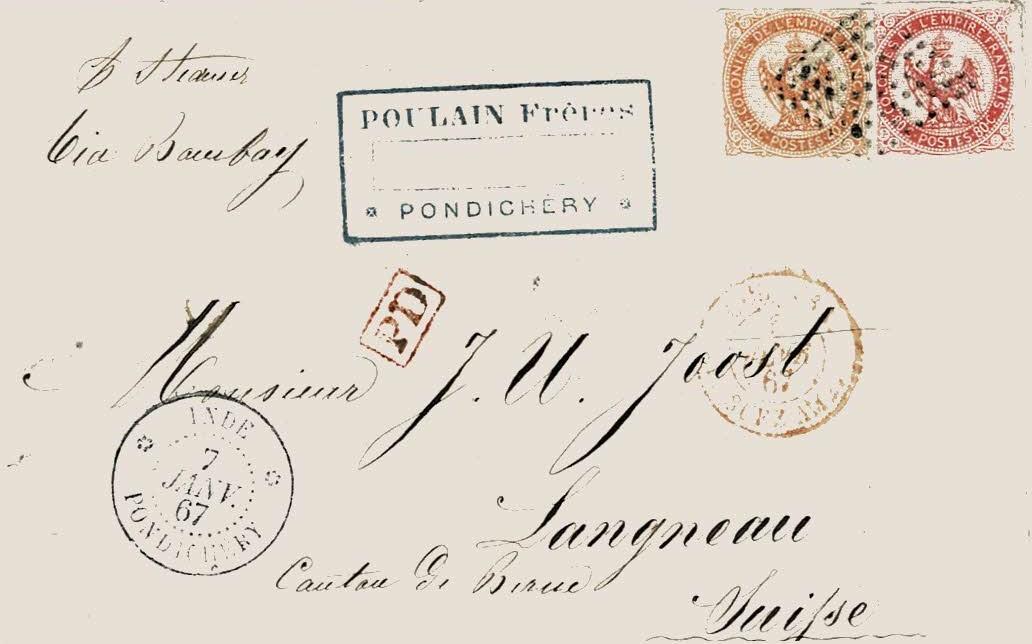 p Steamer
Via Bombay
POULAIN Frères
PONDICHÉRY
COLONIES DE L'EMPIRE FRANÇAIS
40C. POSTES. 40C.
COLONIES DE L'EMPIRE FRANÇAIS
POSTES. 80C.
PD
Monsieur J. U. Joost
SUEZ
67
INDE
7
JANV.
67
PONDICHERY
Langneau
Canton de Berne
Suisse